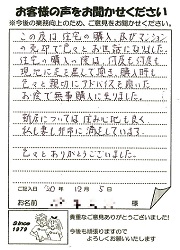 お客様の声をお聞かせください
※今後の業務向上のため、ご意見をお聞かせください
この度は住宅の購入、及びマンション
の売却で色々とお世話になりました。
住宅の購入の度は、何度も何度も
現地に足を運んで頂き、購入時も
色々と親切にアドバイスを頂いた
お陰で無事購入に至りました。
新居については住み心地も良く
私も妻も非常に満足しています。
色々とありがとうございました。
ご記入日 20年 12月 5日
お名前 様
Since
1979
貴重なご意見ありがとうございました!
今後も頑張りますので
よろしくお願いいたします